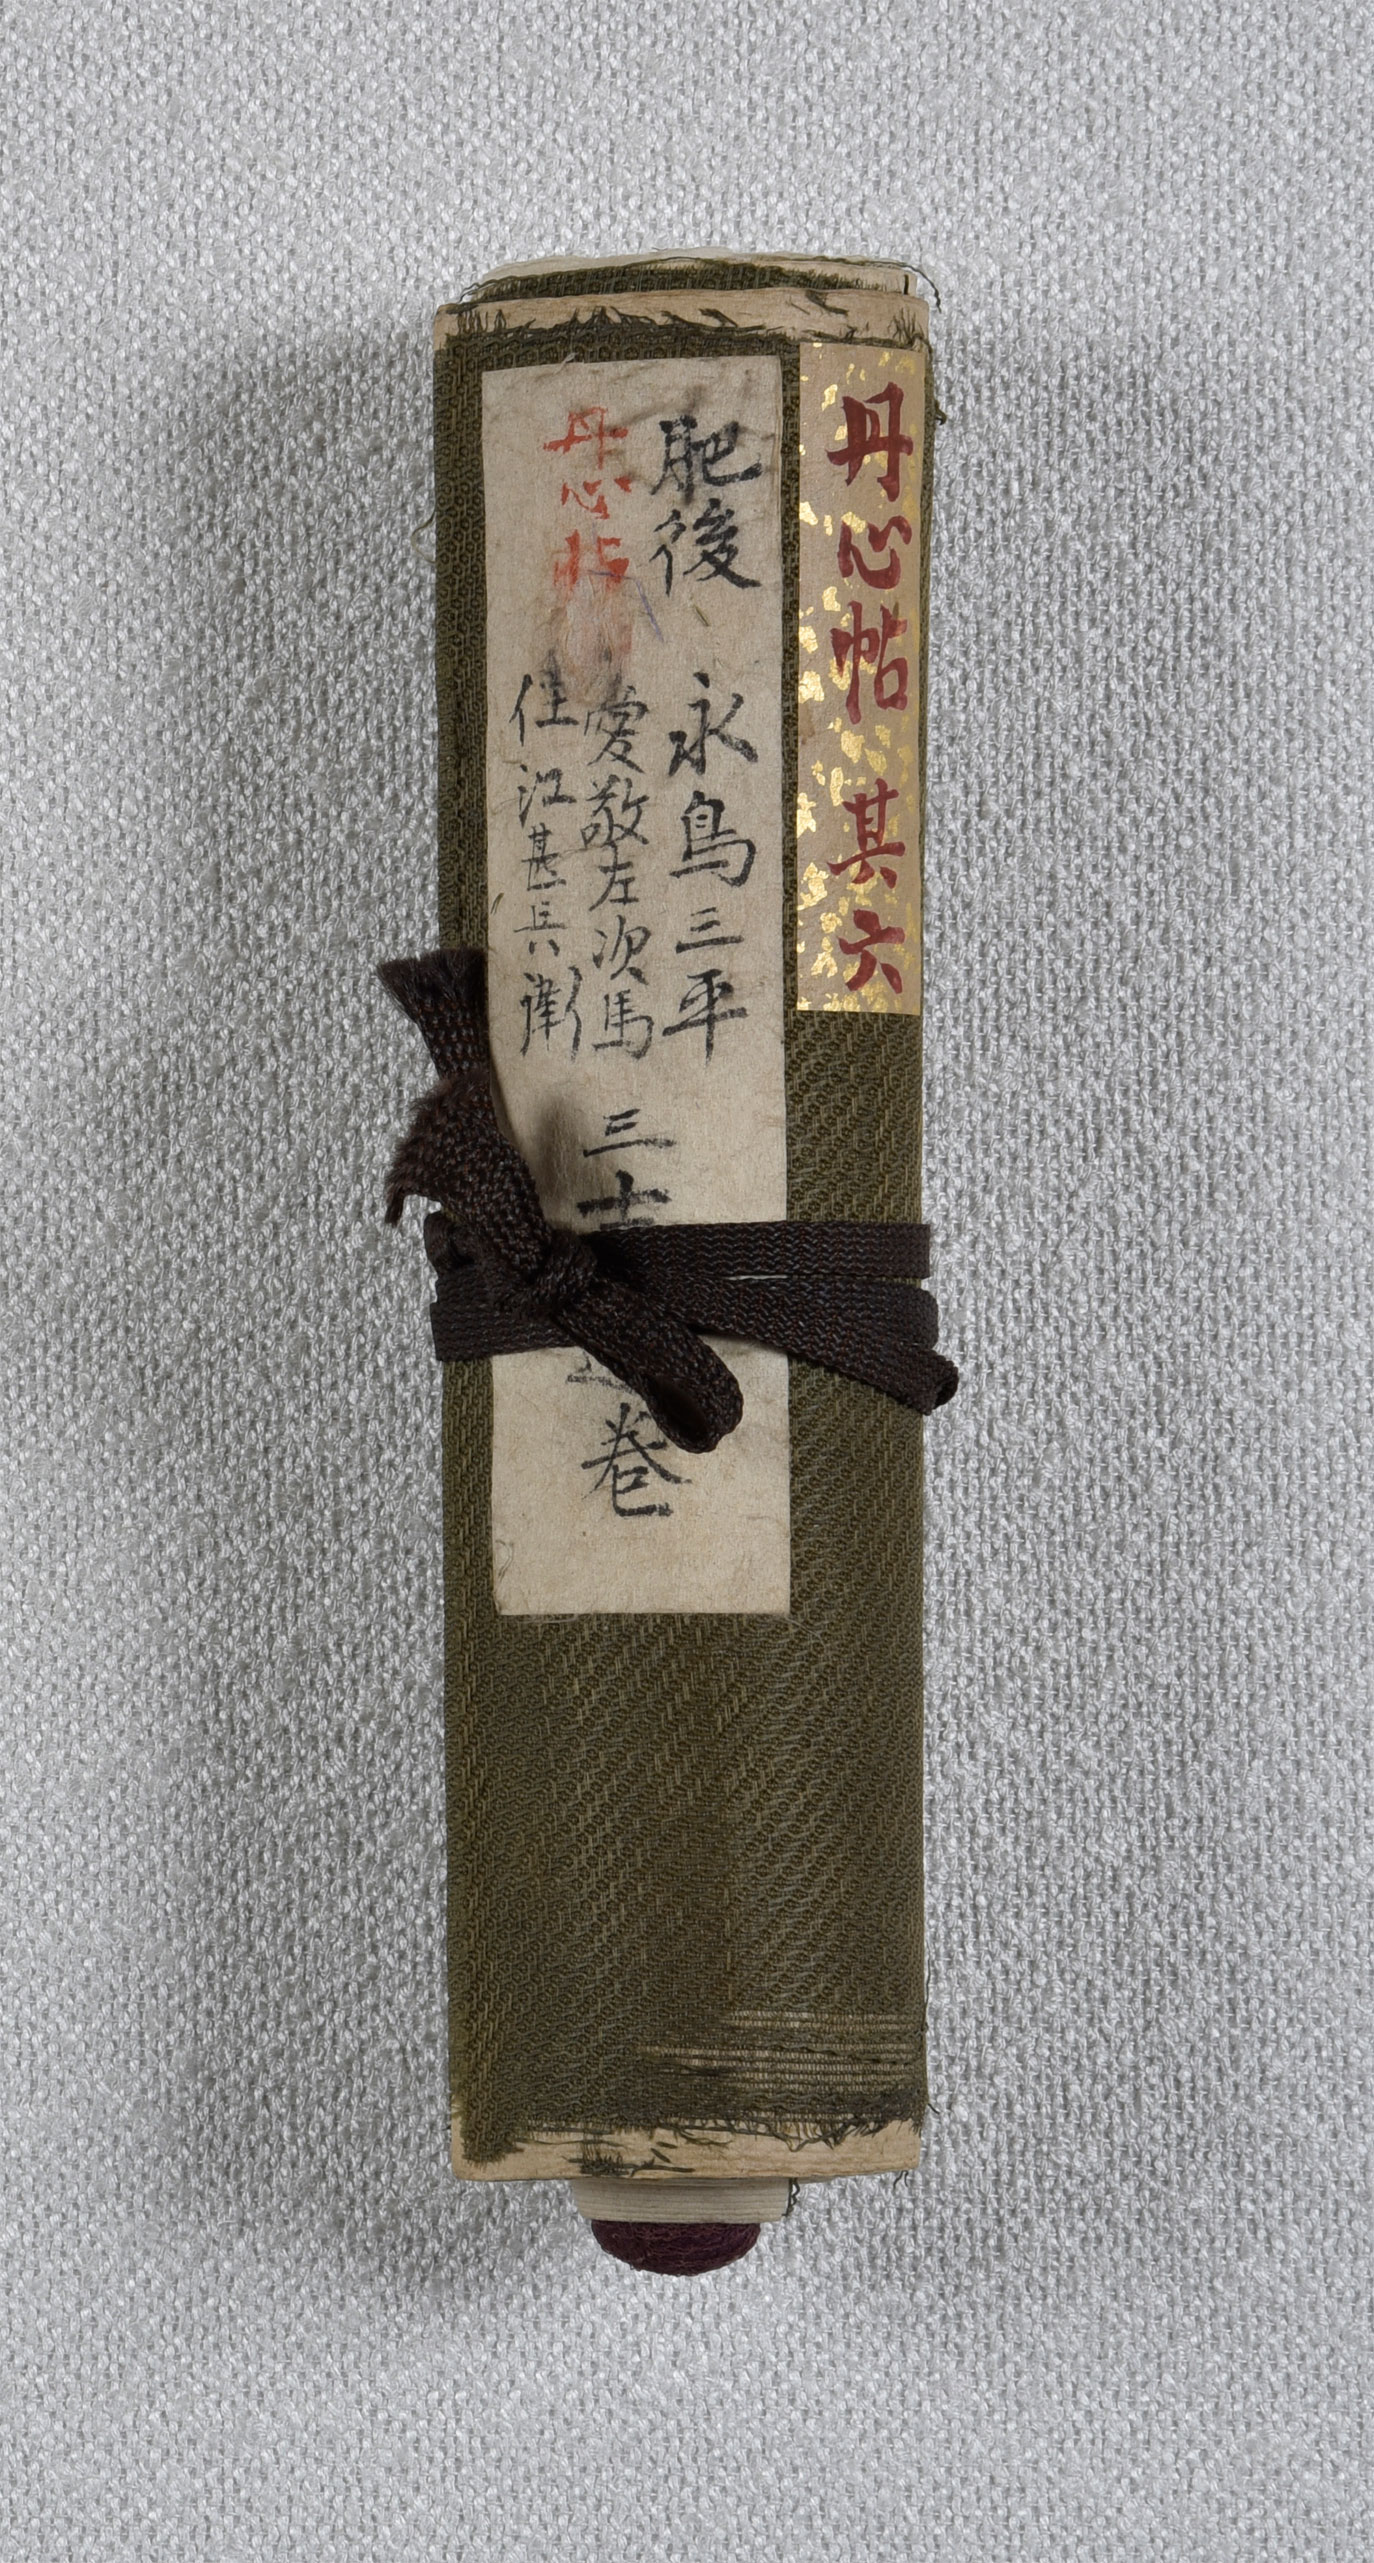 丹心帖 其六
肥後 永鳥三平
丹心帖 愛敬左次馬
住江甚兵衛
三士
卷